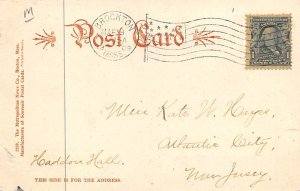 M
BROCKTON
MASS.
Post Card
The Metropolitan News Co., Boston, Mass.
Miss Kate W. Hayes,
Atlantic City,
Haddon Hall.
New Jersey
THIS SIDE IS FOR THE ADDRESS.